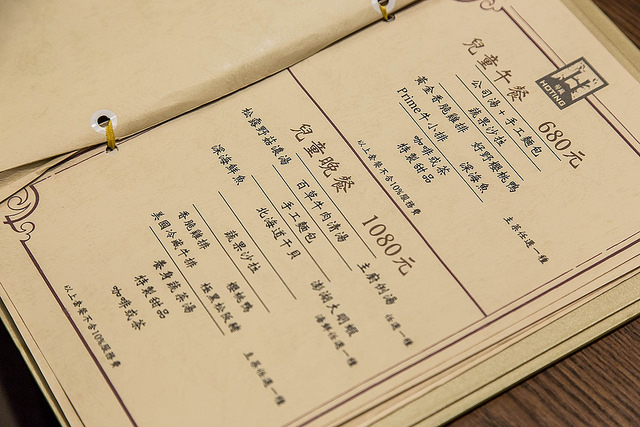 HOTING
兒童午餐 680元
公司湯+手工麵包
蔬果沙拉
黃金香脆雞排 好野櫻桃鴨
Prime牛小排 深海魚
主菜任選一種
咖啡或茶
特製甜品
以上套餐不含10%服務費
兒童晚餐 1080元
松露野菇濃湯 百草牛肉清湯 主廚例湯
任選一種
手工麵包
深海鮮魚 北海道干貝 澎湖大明蝦
海鮮任選一種
蔬果沙拉
香脆雞排 櫻桃鴨
美國冷藏牛排
主菜任選一種
養身蔬菜湯
特製甜品
咖啡或茶
以上套餐不含10%服務費